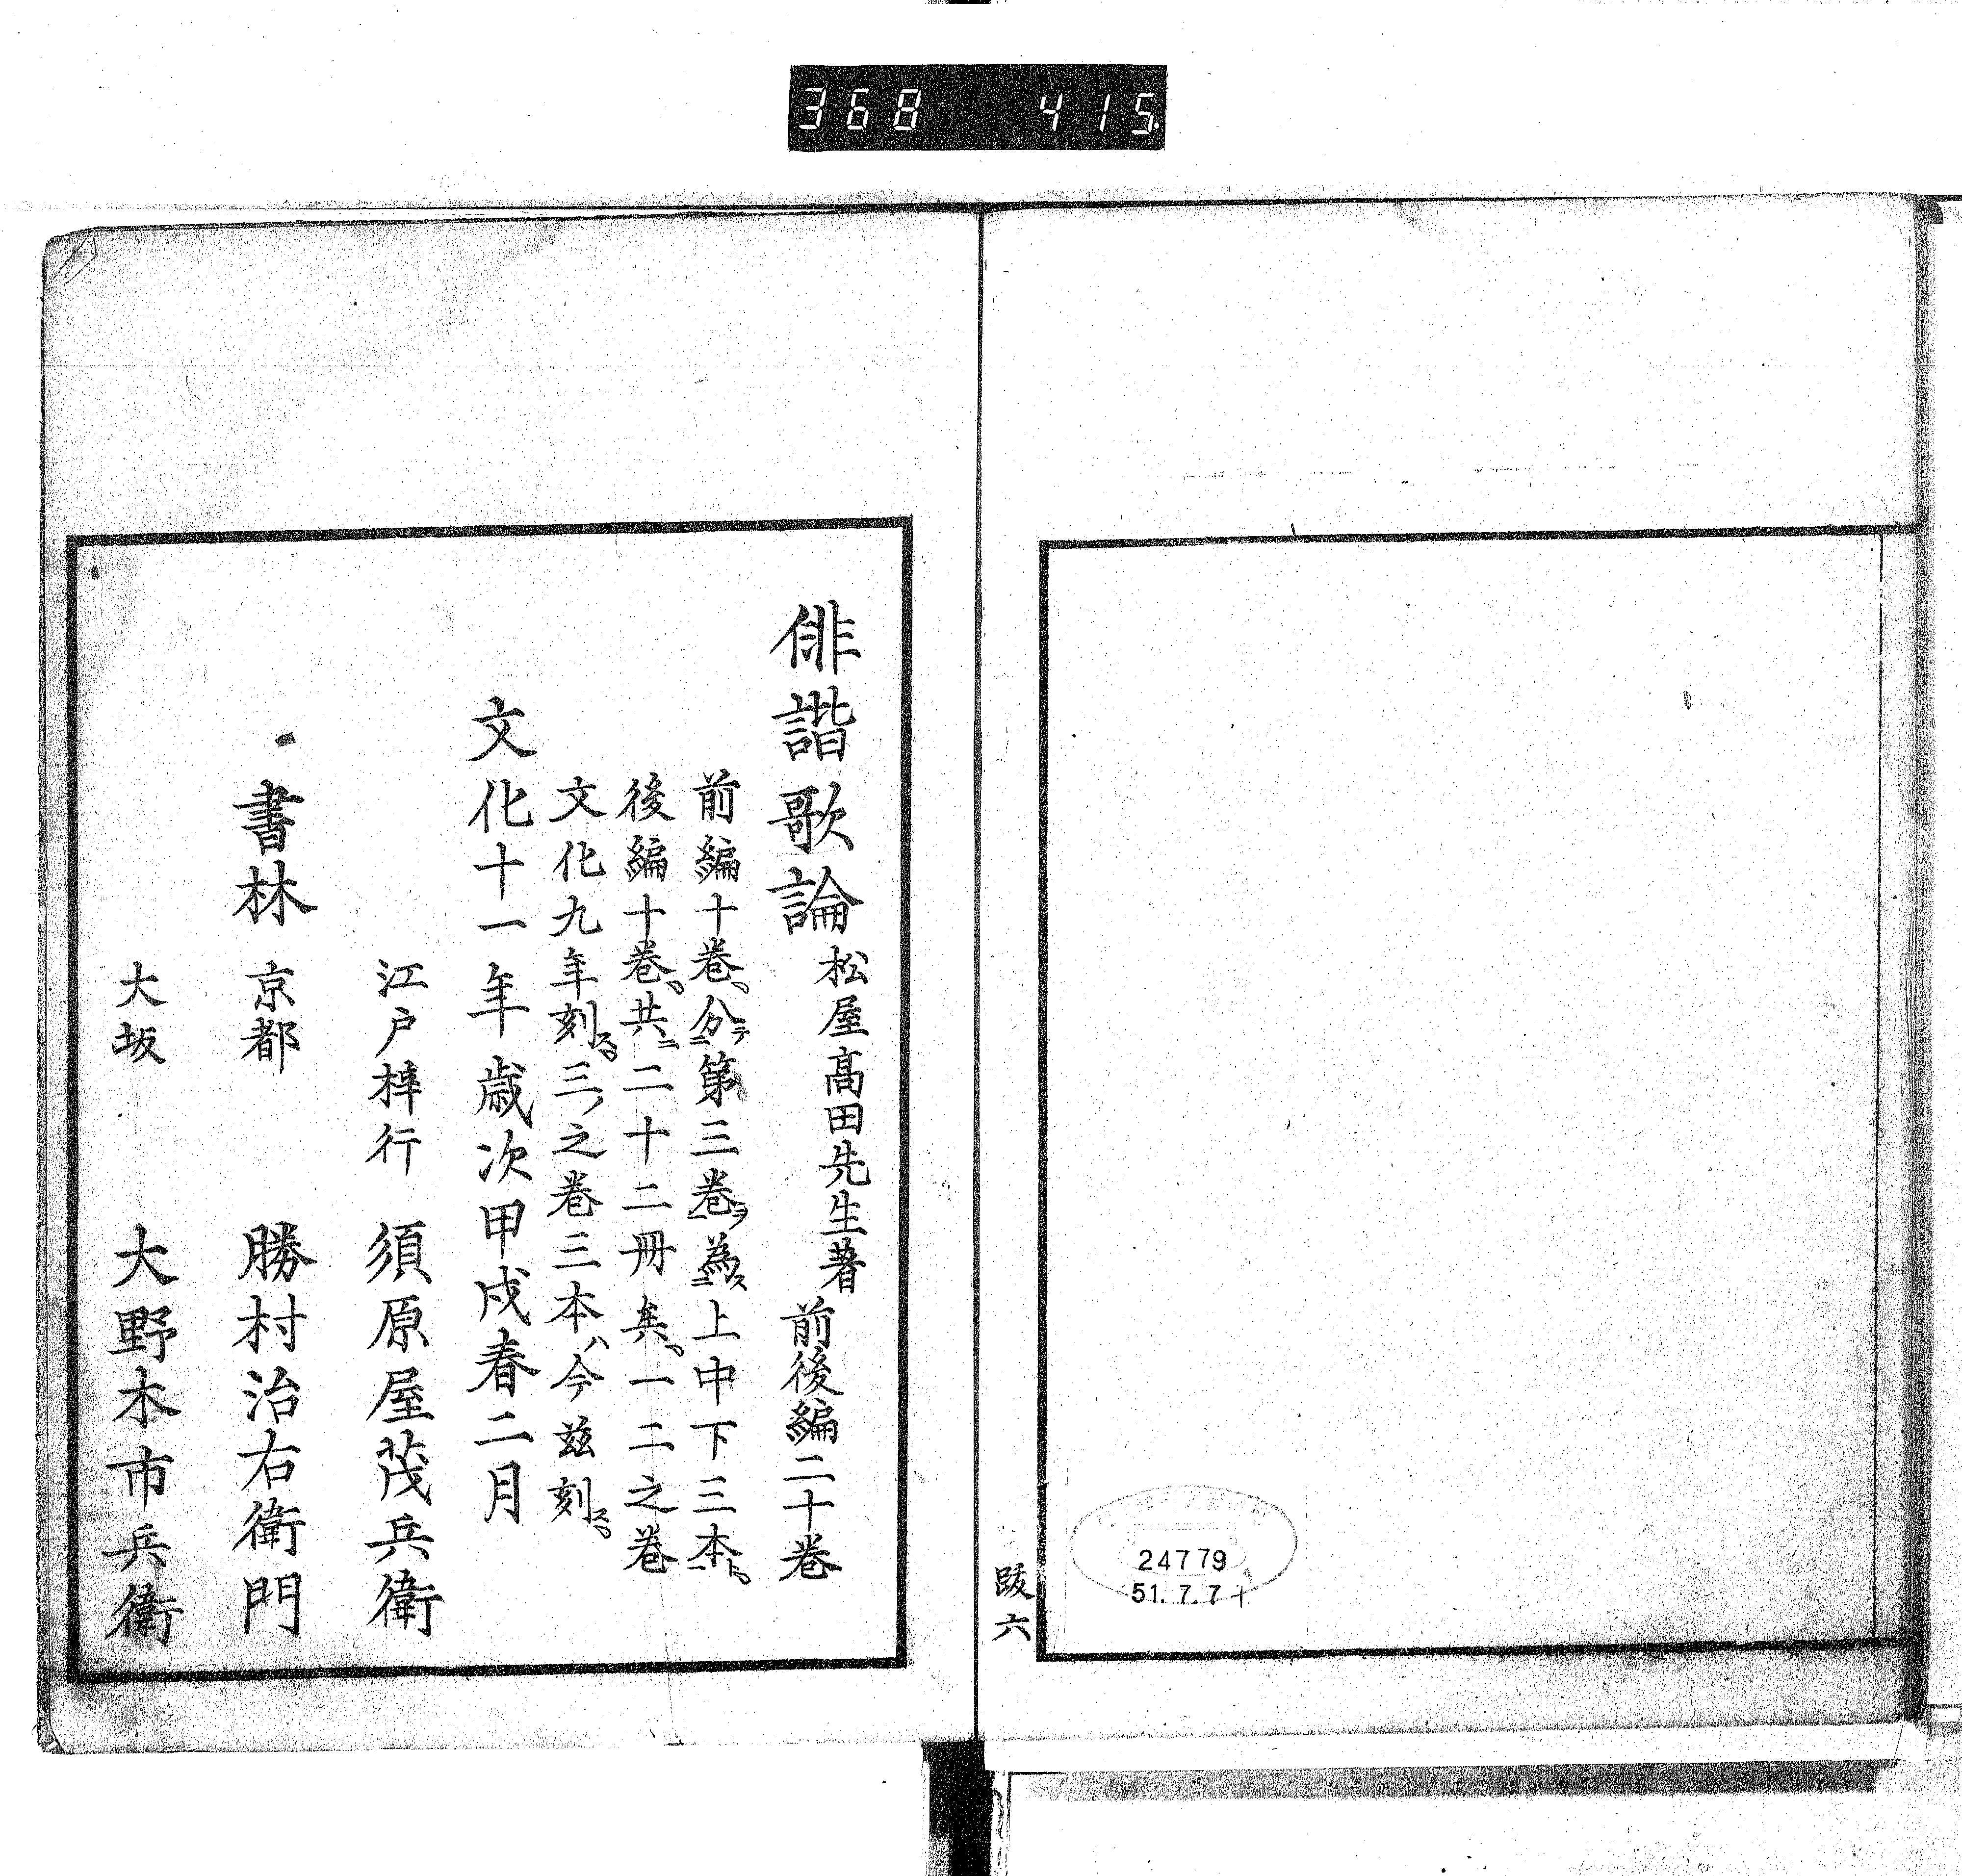 368 415
24779
51.7.7
跋六
俳諧歌論 松屋高田先生著 前後編二十巻
前編十巻、分テ二第三巻ヲ一為ス二上中下三本ト一、
後編十巻、共ニ二十二冊矣、一二之巻
文化九年刻ス、三ノ之巻三本ハ今茲刻ス、
文化十一年歳次甲戌春二月
江戸梓行 須原屋茂兵衛
書林 京都 勝村治右衛門
大坂 大野木市兵衛